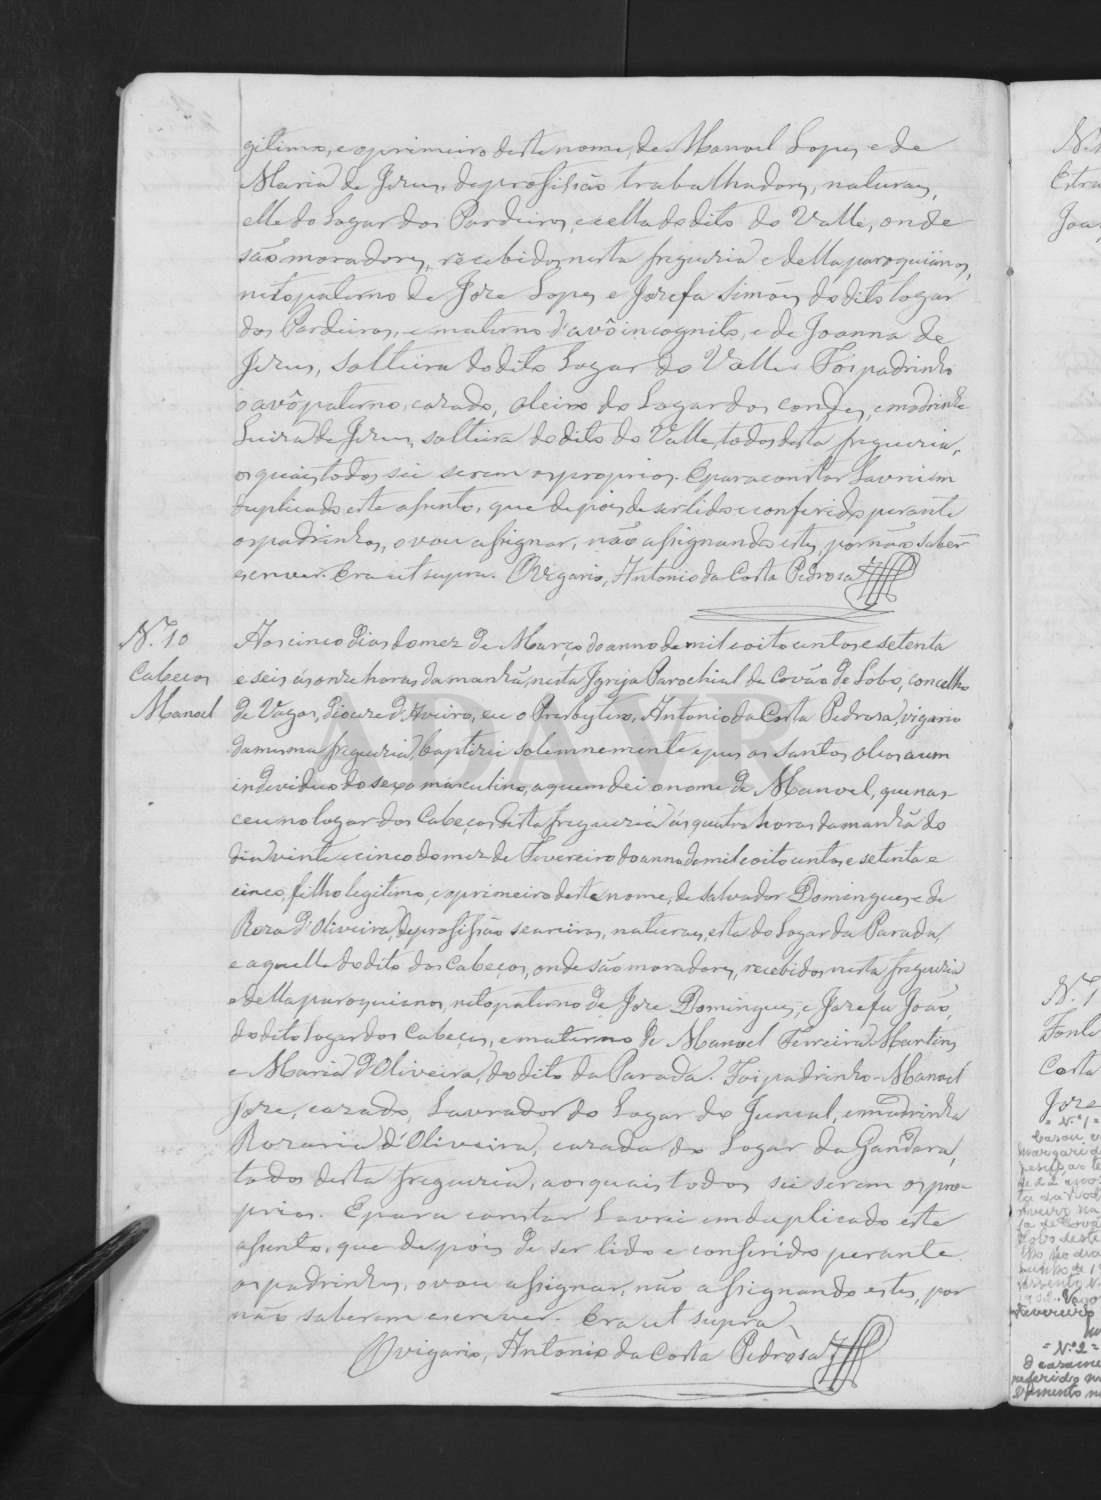 gitimo, e o primeiro deste nome, de Manoel Lopes e de
Maria de Jesus, de profissão trabalhadores, naturaes,
elle do Lugar dos Pardeiros, e ella do dito do Valle, onde
são moradores, recebidos nesta freguezia e della paroquianos,
neto paterno de Joze Lopes e Jozefa Simões, do dito logar
dos Pardeiros, e materno d'avô incognito, e de Joanna de
Jezus, solteira do dito Lugar do Valle. Foi padrinho
o avô paterno, cazado, oleiro do Lugar dos, e madrinha
Luiza de Jezus, solteira do dito do Valle, todos desta freguezia,
os quaes todos sei serem os proprios. E para constar Lavrei em
duplicado este assento, que depois de ser lido e conferido perante
os padrinhos, o vou assignar, não assignando estes, por não saberem
escrever. Era ut supra. O Vigario, Antonio da Costa Pedrosa
N.º 10
Cabeços
Manoel
Aos cinco dias do mez de Março do anno de mil oito centos e setenta
e seis ás onze horas da manhã, nesta Igreja Parochial de Covão de Lobo, concelho
de Vagos, diocese d'Aveiro, eu o Presbytero, Antonio da Costa Pedrosa, vigario
da mesma freguezia, baptizei solemnemente e pus os santos oleos a um
individuo do sexo masculino, a quem dei o nome de Manoel, que nas-
ceu no logar dos Cabeços desta freguezia ás quatro horas da manhã do
dia vinte e cinco do mez de Fevereiro do anno de mil oito centos e setenta e
cinco, filho legitimo, e o primeiro deste nome, de Salvador Domingues e de
Roza d'Oliveira, de profissão seareiros, naturaes, esta do Lugar da Parada,
e aquelle do dito dos Cabeços, onde são moradores, recebidos nesta freguezia
e della paroquianos, neto paterno de Joze Domingues, e Jozefa João,
do dito Lugar dos Cabeços, e materno de Manoel Ferreira Martins
e Maria d'Oliveira, do dito da Parada. Foi padrinho Manoel
Joze, cazado, Lavrador do Lugar do Juncal, e madrinha
Rozaria d'Oliveira, cazada do Lugar da Gandara,
todos desta freguezia, aos quaes todos sei serem os pro-
prios. E para constar Lavrei em duplicado este
assento, que depois de ser lido e conferido perante
os padrinhos, o vou assignar, não assignando estes, por
não saberem escrever. Era ut supra.
O vigario, Antonio da Costa Pedrosa
ADAVR
N.º 1
Fonte
Costa
Joze
= N.º 1 =
= N.º 2 =